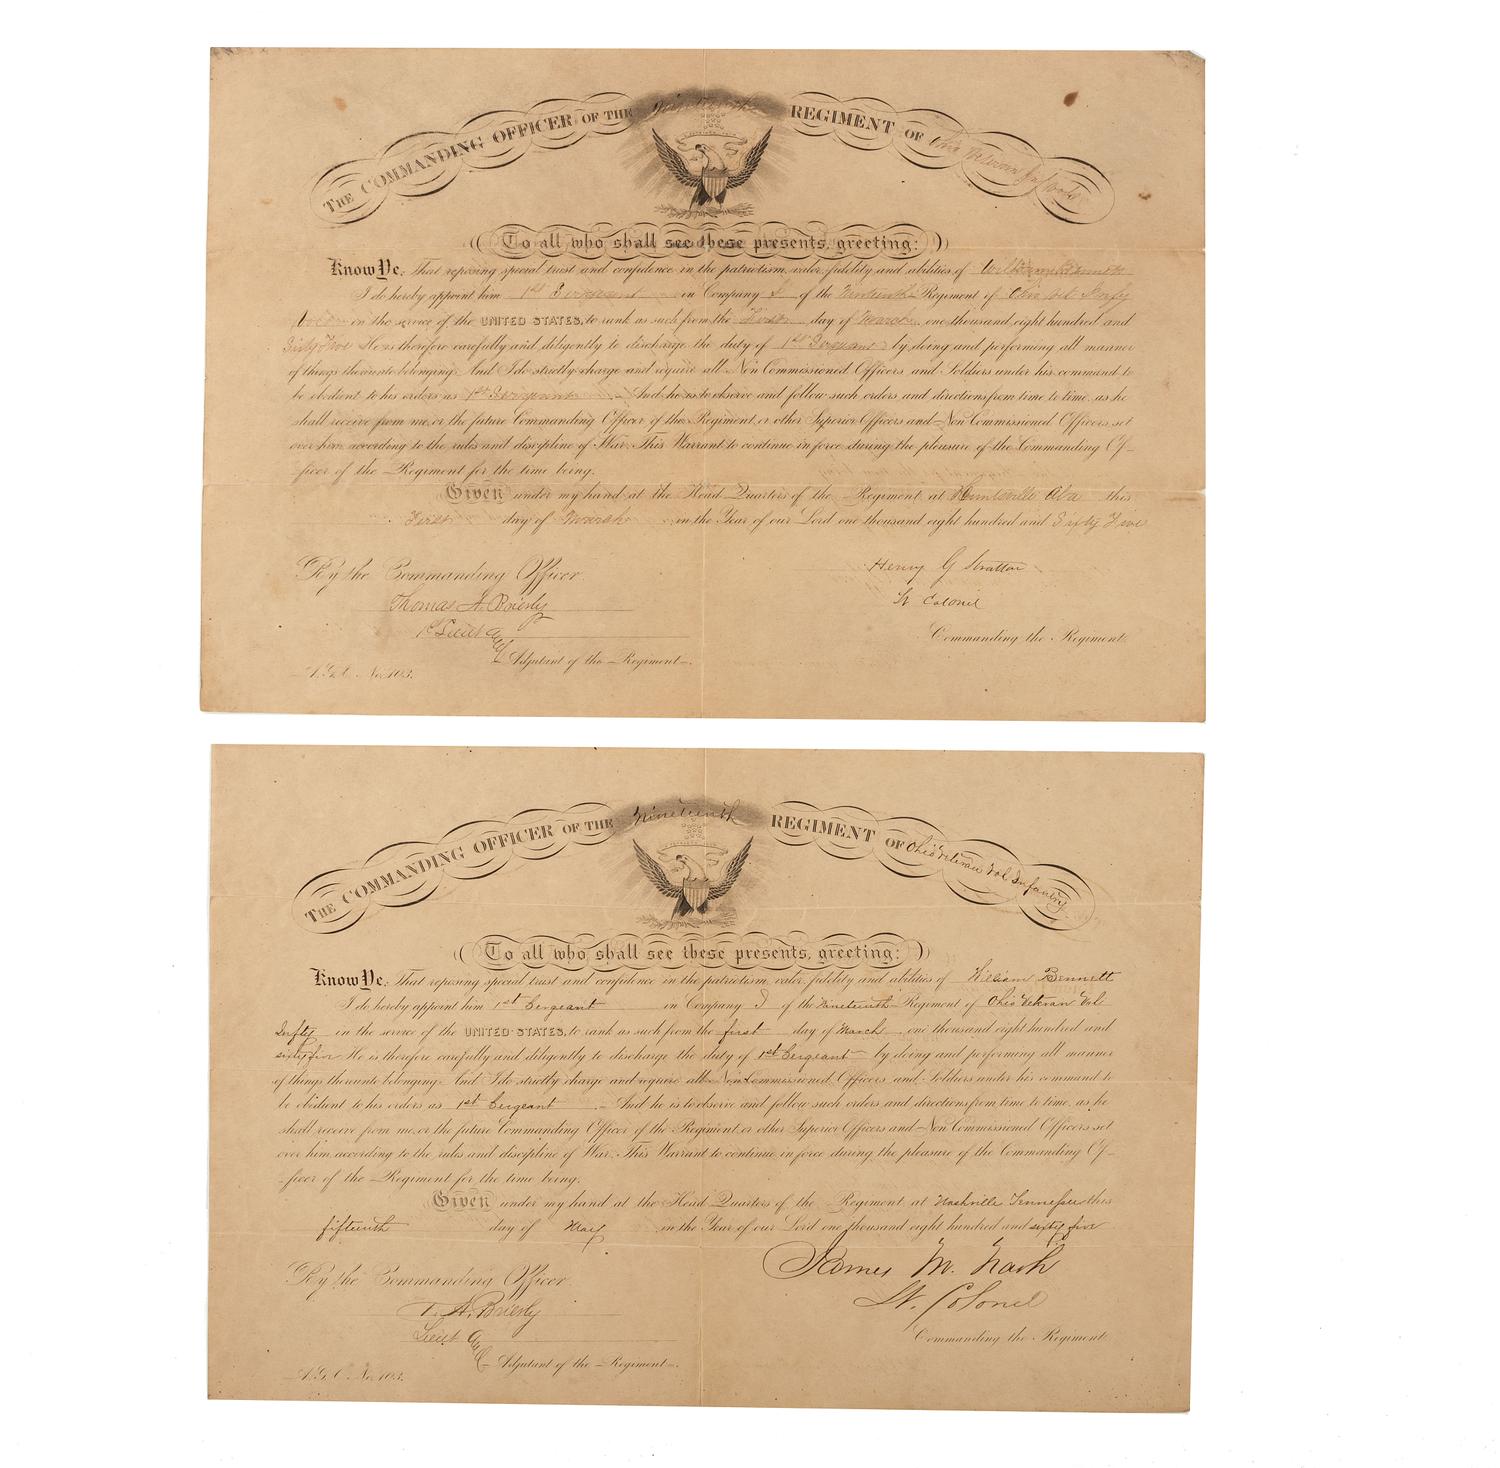 THE COMMANDING OFFICER OF THE Nineteenth REGIMENT OF Ohio Veteran
To all who shall see these presents, greeting:
Know Ye, That reposing special trust and confidence in the patriotism, valor, fidelity and abilities of William Bennett
I do hereby appoint him 1st Sergeant in Company I of the Nineteenth Regiment of Ohio Vet Infty
Vols in the service of the UNITED STATES, to rank as such from the First day of March one thousand eight hundred and
Sixty Five He is therefore carefully and diligently to discharge the duty of 1st Sergeant by doing and performing all manner
of things thereunto belonging. And I do strictly charge and require all Non Commissioned Officers and Soldiers under his command to
be obedient to his orders as 1st Sergeant And he is to observe and follow such orders and directions from time to time, as he
shall receive from me, or the future Commanding Officer of the Regiment, or other Superior Officers and Non Commissioned Officers set
over him, according to the rules and discipline of War. This Warrant to continue in force during the pleasure of the Commanding Of-
-ficer of the Regiment for the time being.
Given under my hand at the Head Quarters of the Regiment at Huntsville Ala this
First day of March in the Year of our Lord one thousand eight hundred and Sixty Five
By the Commanding Officer.
Henry G Stratton
Thomas A. Brierly
Lt Colonel
1st Lieut &
Commanding the Regiment
Adjutant of the Regiment.
A. G. O. No. 103.
THE COMMANDING OFFICER OF THE Nineteenth REGIMENT OF Ohio Veteran Vol Infantry
To all who shall see these presents, greeting:
Know Ye, That reposing special trust and confidence in the patriotism, valor, fidelity and abilities of William Bennett
I do hereby appoint him 1st Sergeant in Company I of the Nineteenth Regiment of Ohio Veteran Vol
Infty in the service of the UNITED STATES, to rank as such from the first day of March one thousand eight hundred and
sixty five He is therefore carefully and diligently to discharge the duty of 1st Sergeant by doing and performing all manner
of things thereunto belonging. And I do strictly charge and require all Non Commissioned Officers and Soldiers under his command to
be obedient to his orders as 1st Sergeant And he is to observe and follow such orders and directions from time to time, as he
shall receive from me, or the future Commanding Officer of the Regiment, or other Superior Officers and Non Commissioned Officers set
over him, according to the rules and discipline of War. This Warrant to continue in force during the pleasure of the Commanding Of-
-ficer of the Regiment for the time being.
Given under my hand at the Head Quarters of the Regiment at Nashville Tennessee this
fifteenth day of May in the Year of our Lord one thousand eight hundred and sixty five
By the Commanding Officer.
James M. Nash
T. A. Brierly
Lt. Colonel
Lieut
Commanding the Regiment
Adjutant of the Regiment.
A. G. O. No. 103.